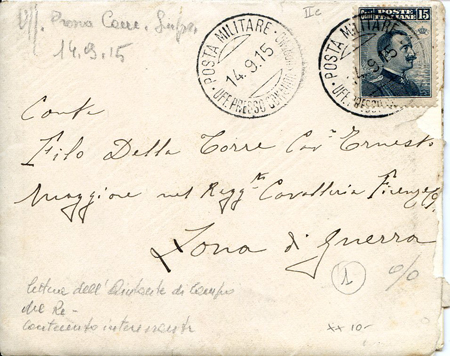 Uff. Posta Com. Supr.
14.9.15
IIc
POSTA MILITARE
14.9.15
UFF. PRESSO COM.
POSTA MILITARE
.9.15
UFF. PRESSO
POSTE ITALIANE 15
Conte
Filo Della Torre Cav Ernesto
Maggiore nel Regg.to Cavalleria Firenze 9°
Zona di Guerra
lettera dell'Aiutante di Campo
del Re -
contenuto interessante
1
%
xx 10-